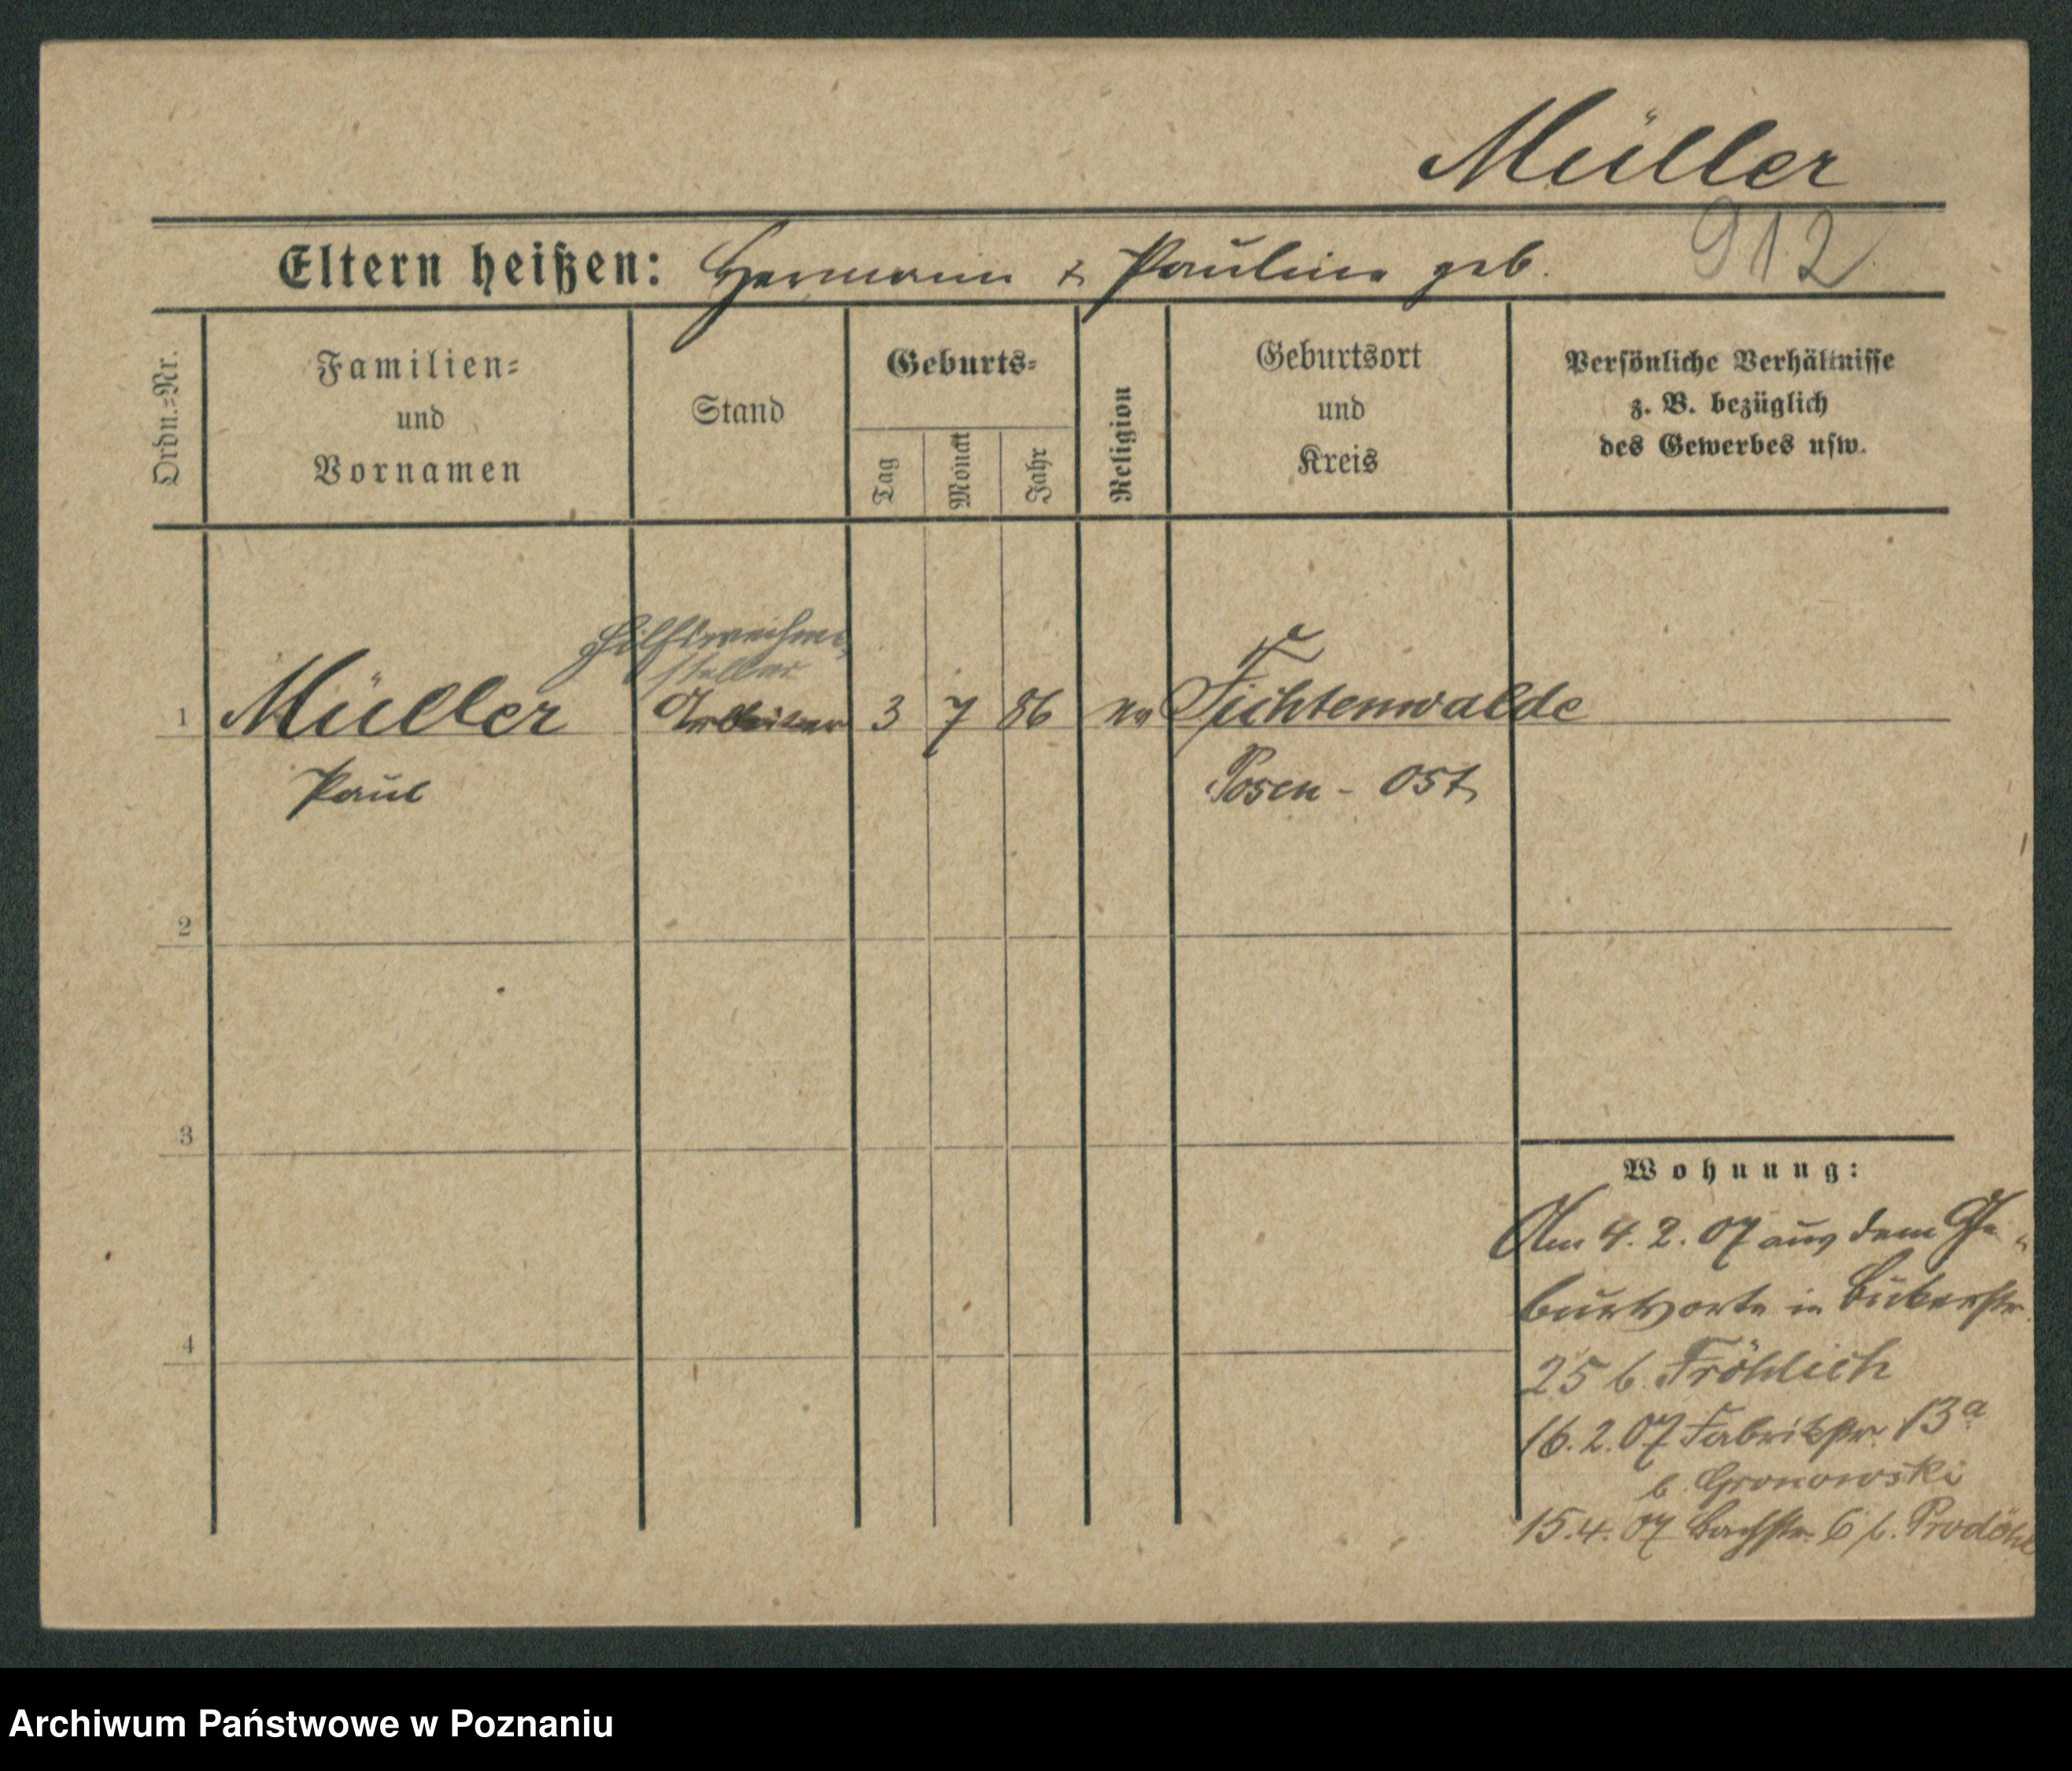 Müller
912
Eltern heißen: Hermann & Pauline geb.
Ordn.-Nr.
Familien-
und
Vornamen
Stand
Geburts-
Tag
Monat
Jahr
Religion
Geburtsort
und
Kreis
Persönliche Verhältnisse
z. B. bezüglich
des Gewerbes usw.
Hilfsweichen
steller
1 Müller Arbeiter 3 7 86 ev Fichtenwalde
Paul
Posen - Ost
2
3
4
Wohnung:
Am 4. 2. 07 aus dem Ge-
burtsorte in Bukerstr.
25 b. Fröhlich
16. 2. 07 Fabrikstr. 13a
b. Gronowski
15. 4. 07 Bachstr. 6 b. Prodöhl
Archiwum Państwowe w Poznaniu